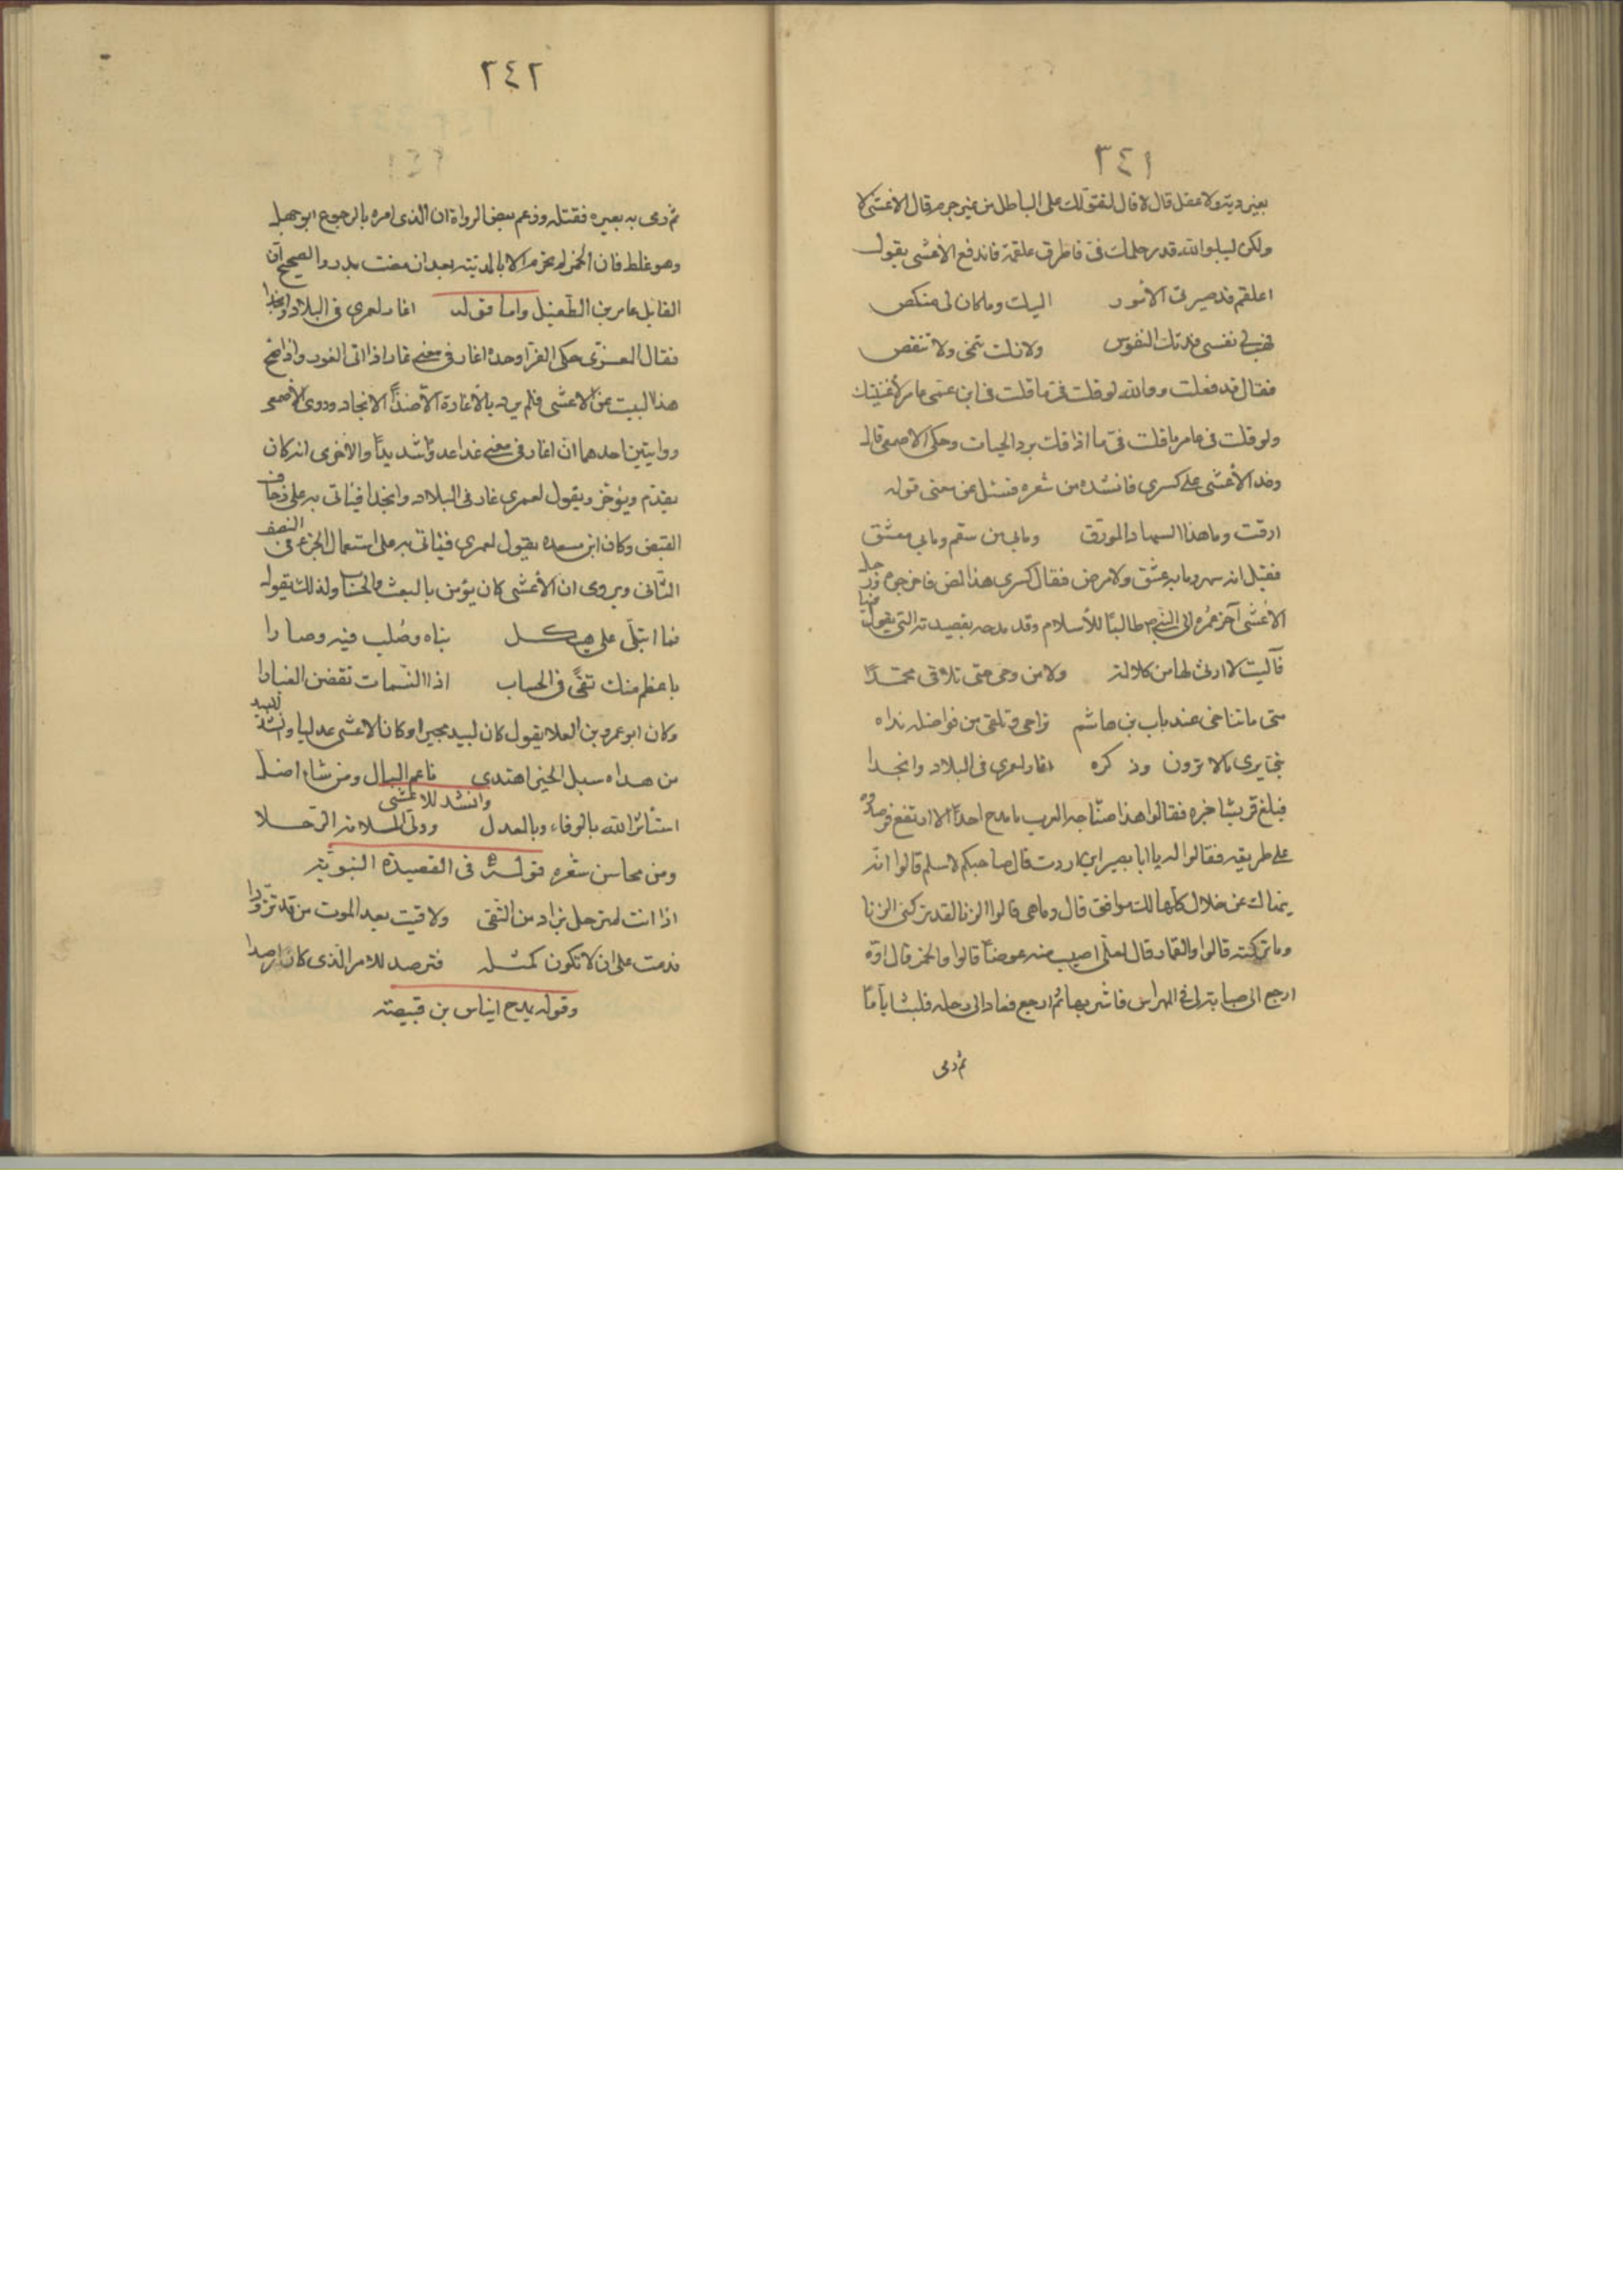 ٣٤١
بغير دية ولا عقل قال لا قال لتقولك على الباطل من غير جرم قال الاعشى لا
ولكن ليبلو الله قدر حلمك فيّ فاطرق علقمة فاندفع الأعشى يقول
اعلقم قد صيرتنى الامور اليك وما كان لى منكص
فهب لى نفسى فدتك النفوس ولا زلت تنمى ولا تنقص
فقال قد فعلت ووالله لو قلت فيّ ما قلت فى ابن عمى عامر لأغنيتك
ولو قلت فى عامر ما قلت فيّ ما اذاقك برد الحيات وحكى الاصمعى قال
وفد الأعشى على كسرى فانشده من شعره فسئل عن معنى قوله
ارقت وما هذا السهاد المورّق وما بى من سقم وما بى معشق
فقيل انه سهر وما به عشق ولا مرض فقال كسرى هذا لص فاخرجوه ورحل
الأعشى آخر عمره الى النبي ص طالبًا للأسلام وقد مدحه بقصيدته التي يقول فيها
فآليت لا ارثى لها من كلالة ولا من وجى حتى تلاقى محمّدًا
متى ما تناخى عند باب بن هاشم تراحى وتلقى من فواضله نداه
نبى يرى ما لا ترون وذكره اغار لعمرى فى البلاد وانجدا
فبلغ قريشا خبره فقالوا هذا صنّاجة العرب ما مدح احدًا الا ارتفع فرصدوه
على طريقه فقالوا له يا ابا بصير اين اردت قال صاحبكم لاسلم قالوا انّه
ينهاك عن خلال كلّها لك موافق قال وما هى قالوا الزنا قال لقد تركنى الزنا
وما تركته قالوا والقمار قال لعلّى اصيب منه عوضًا قالوا والخمر قال اوّه
ارجع الى صبابة لى فى المهراس فاشربها ثم ارجع فعاد الى رحله فلبث ايّامًا
ثم رمى
٣٤٢
ثم رمى به بعيره فقتله وزعم بعض الرواة ان الذى امره بالرجوع ابو جهل
وهو غلط فان الخمر لم تحرّم الا بالمدينة بعد ان مضت بدر والصحيح ان
القايل عامر بن الطفيل واما قوله اغار لعمرى فى البلاد وانجدا
فقال العنزى حكى الفرا وحده اغار فى معنى غار اذا اتى الغور واذا صح
هذا البيت عن الاعشى فلم يرد بالاغارة الا ضدّ الانجاد وروى الاصمعى
روايتين احدهما ان اغار فى معنى عدا عدوًا شديدًا والأخرى انه كان
يقدّم ويؤخر ويقول لعمرى غار فى البلاد وانجدا فياتى به على زحاف
القبض وكان ابن مسعده يقول لعمرى فياتى به على استعمال الجزء فى النصف
الثّانى ويروى ان الأعشى كان يؤمن بالبعث والحساب ولذلك يقول
فما ابتلى على هيكل بناه وصلب فيه وصارا
باعظم منك تقىً فى الحساب اذا النّسمات نفضن الغبارا
وكان ابو عمرو بن العلا يقول كان لبيد مجبرا وكان الاعشى عدليا وانشد للبيد
من هداه سبل الخير اهتدى ناعم البال ومن شاء اضلّ
وانشد للاعشى
استأثر الله بالوفاء وبالعدل وولّى الملامة الرّجلا
ومن محاسن شعره قوله فى القصيدة النبويّة
اذا انت لم ترحل بزاد من التّقى ولاقيت بعد الموت من قد تزوّدا
ندمت على ان لا تكون كمثله فترصد للامر الّذى كان ارصدا
وقوله يمدح اياس بن قبيصة